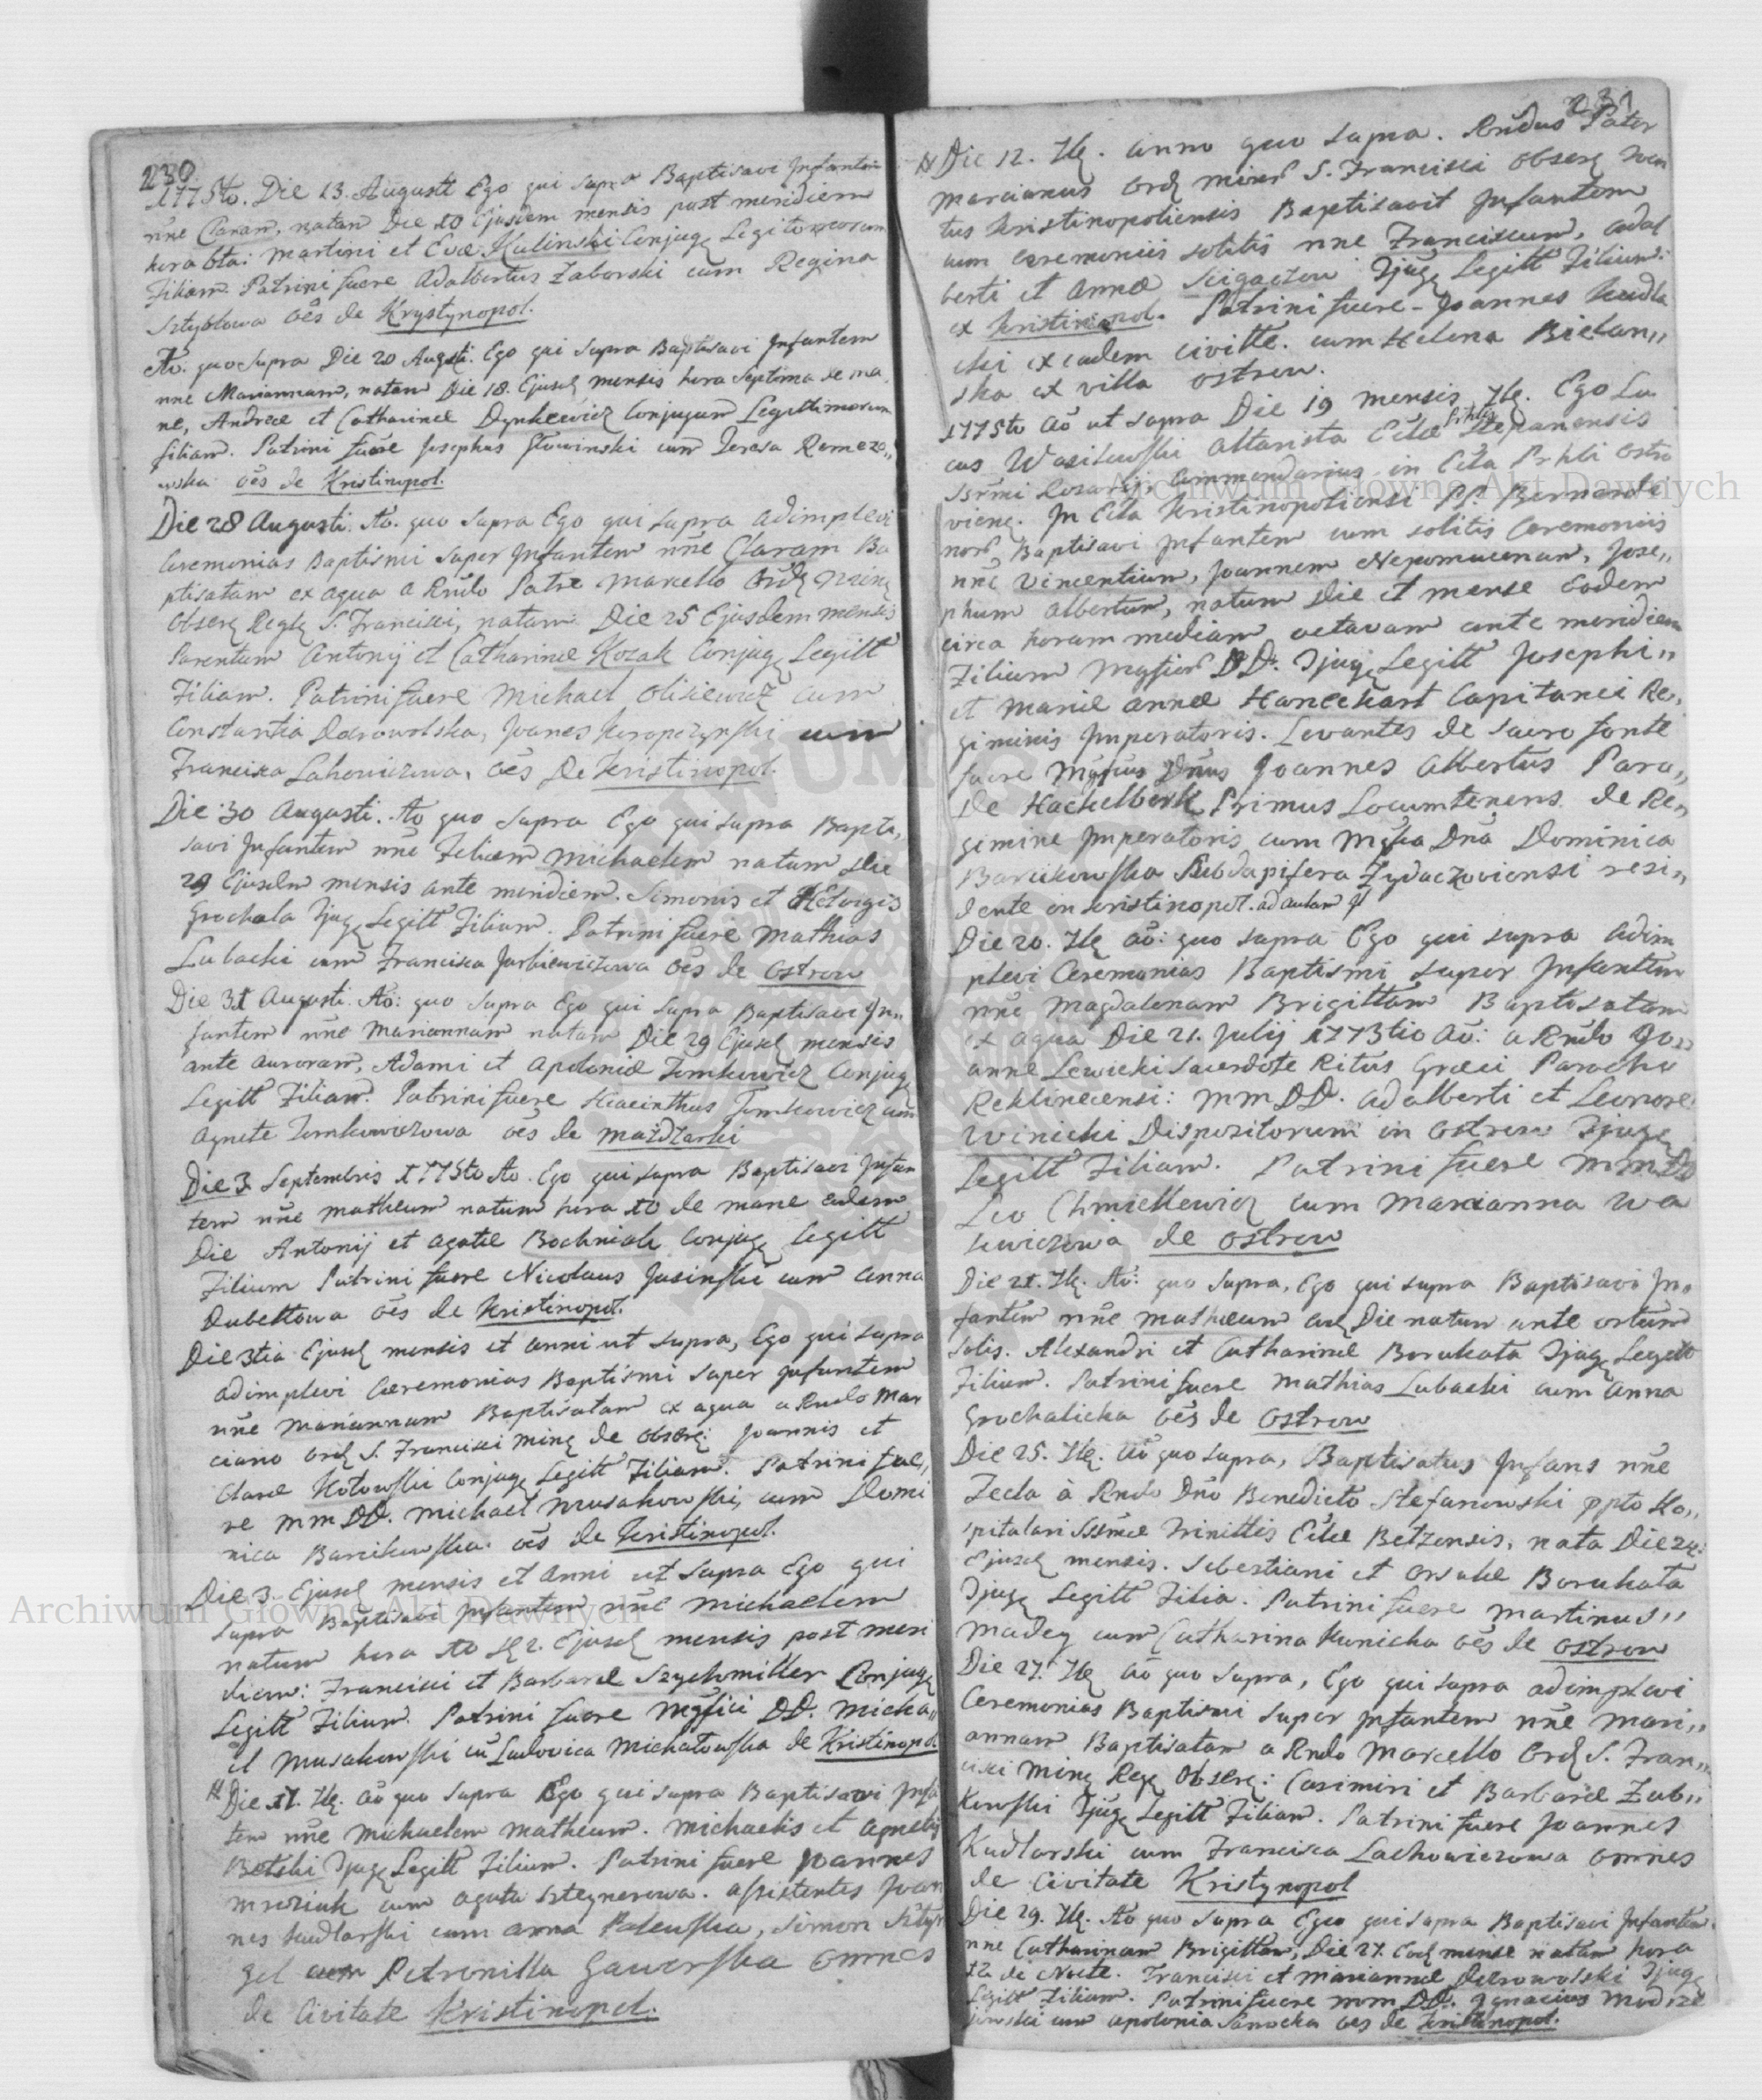 230.
1775to. Die 13. Augusti Ego qui supra Baptisavi Infantem
nne Claram, natam Die 10 Ejusdem mensis post meridiem
hora 6ta: Martini et Evae Kulinski Conjugę Legitomorum
Filiam. Patrini fuere Adalbertus Zaborski cum Regina
Sztyblowa oẽs de Krystynopol.
Ao. quo supra Die 20 Augusti. Ego qui supra Baptisavi Infantem
nne Mariannam, natam Die 18. Ejusd mensis hora septima de ma
ne, Andreae et Catharinae Dynkiewicz Conjugum Legittimorum
filiam. Patrini fuere Josephus Słowinski cum Teresa Remezo,,
wska oẽs de Kristinopol.
Die 28 Augusti. Ao. quo supra Ego qui supra adimplevi
Ceremonias Baptismi super Infantem nñe Claram Ba
ptisatam ex aqua a Rndo Patre Marcello Ordę Minę
Obserę Regłę S. Francisci, natam Die 25 Ejusdem mensis
Parentum Antonij et Catharinae Kozak Conjugę Legitt
Filiam. Patrini fuere Michael Olisiewicz cum
Constantia Darowolska, Joanes Koropczynski cum
Francisca Lahowiczowa, oẽs de Kristinopol.
Die 30 Augusti. Ao quo supra Ego qui supra Bapti,
savi Infantem nñe Felicem Michaelem natum Die
29 Ejusdem mensis ante meridiem. Simonis et Hetvigis
Grochala Cjugę Legitt Filium. Patrini fuere Mathias
Lubacki cum Francisca Jurkiewiczowa oẽs de Ostrow
Die 31 Augusti. Ao: quo supra Ego qui supra Baptisavi In,,
fantem nñe Mariannam natam Die 29 Ejusd mensis
ante auroram, Adami et Apoloniae Tomkowicz Conjugę
Legitt Filiam. Patrini fuere Hiacinthus Tomkowicz cum
Agnete Tomkowiczowa oẽs de Mazdzarki
Die 3 Septembris 1775to Ao. Ego qui supra Baptisavi Infan
tem nñe Matheum natum hora 10 de mane eadem
Die Antonij et Agatae Bochniak Conjugę Legitt
Filium Patrini fuere Nicolaus Jasinski cum Anna
Dubeltowa oẽs de Kristinopol.
Die 3tia Ejusd mensis et anni ut supra, Ego qui supra
adimplevi Ceremonias Baptismi super Infantem
nñe Mariannam Baptisatam ex aqua a Rndo Mar
ciano Ord S. Francisci Minę de Obserę: Joannis et
Clarae Kotowski Conjugę Legitt Filiam. Patrini fue,,
re MM DD. Michael Musakowski, cum Domi
nica Barcikowska. oẽs de Kristinopol.
Die 3. Ejusd mensis et Anni ut supra Ego qui
supra Baptisavi Infantem nñe Michaelem
natum hora 10 2. Ejusd mensis post meri
diem: Francisci et Barbarae Szychmiller Conjugę
Legitt Filium. Patrini fuere Mgfici DD. Micha,,
el Musakowski cũ Ludovica Michałowska de Kristinopol
Die 11. 7bę. aõ quo supra Ego qui supra Baptisavi Infan
tem nñe Michaelem Matheum. Michaelis et Agnetis
Betski Cjugę Legitt Filium. Patrini fuere Joannes
Mroziuk cum Agata Sztegnerowa. Assistentes Joan
nes Kudlarski cum Anna Palewska, Simon Sztyn
gel cum Petronilla Gaworska omnes
de Civitate Kristinopol.
231
Die 12. 7bę. anno quo supra. Rñdus Pater
Marcianus Ordę Minor S. Francisci Obserę
tus Kristinopoliensis Baptisavit Infantem
cum ceremoniis solitis nne Franciscum, Adal
berti et Annae Scigactow Cjugę Legitt Filium.
ex Kristinopol. Patrini fuere Joannes Kudla
ski ex eadem civitte. cum Helena Bielan,,
ska ex villa Ostrow.
1775to aõ ut supra Die 19 mensis 7bę. Ego Lu
cas Wasilewski Altarista Eclae Stepanensis
Ssrmi Rosarij, Commendarius in Ecla Prhli Ostro
vienę. In Ecla Kristinopoliensi PP. Bernardi
norę Baptisavi Infantem cum solitis Ceremoniis
nñe Vincentium, Joannem Nepomucenum, Jose,,
phum Albertum, natum Die et mense eodem
circa horam mediam octavam ante meridiem
Filium Mgficorę DD. Cjugę Legitt Josephi,,
et Mariae Annae Haneckart Capitanei Re,
giminis Imperatoris. Levantes de sacro fonte
fuere Mgficus Dnus Joannes Albertus Para,,
de Hackelberk Primus Locumtenens de Re,,
gimine Imperatoris cum Mgfica Dnã Dominica
Barcikowska Subdapifera Zydaczoviensi resi,,
dente in Kristinopol. ad aulam
Die 20. 7bę aõ: quo supra Ego qui supra Adim
plevi Ceremonias Baptismi super Infantem
nñe Magdalenam Brigittam Baptisatam
ex aqua Die 21. Julij 1773tio Aõ: a Rndo Jo,,
anne Lewicki Sacerdote Ritus Graeci Parocho
Reklinecensi: MM DD. Adalberti et Leonore
Winicki Dispositorum in Ostrow Cjugę
Legitt Filiam. Patrini fuere MM DD
Leo Chmielewicz cum Marianna Wa
siewiczowa de Ostrow
Die 21. 7bę. Aõ: quo supra, Ego qui supra Baptisavi In,
fantem nñe Matheum eadę Die natum ante ortum
solis. Alexandri et Catharinae Borukata Cjugę Legitt
Filium. Patrini fuere Mathias Lubacki cum Anna
Grochalicka oẽs de Ostrow
Die 25. 7bę. aõ quo supra, Baptisatus Infans nñe
Tecla à Rndo Dño Benedicto Stefanowski ppto Ho,,
spitalari SSmae Trinittis Eclae Betzensis, nata Die 24.
Ejusd mensis. Sebestiani et Orsulae Borukata
Cjugę Legitt Filia. Patrini fuere Martinus,,
Madey cum Catharina Kunicka oẽs de Ostrow
Die 27. 7bę aõ quo supra, Ego qui supra adimplevi
Ceremonias Baptismi super Infantem nñe Mari,,
annam Baptisatam a Rndo Marcello Ordę S. Fran,,
cisci Minę Regę Obserę: Casimiri et Barbarae Zub,,
kowski Cjugę Legitt Filiam. Patrini fuere Joannes
Kudlarski cum Francisca Lachowiczowa omnes
de Civitate Kristynopol
Die 29. 7bę. Ao quo supra Ego qui supra Baptisavi Infantem
nne Catharinam Brigittam, Die 27. Eodę mense natam hora
12 de Nocte. Francisci et Mariannae Dobrowolski Cjugę
Legitt Filiam. Patrini fuere MM DD. Ignacius Modrze
jowski cum Apolonia Sanocka oẽs de Kristinopol.
Archiwum Główne Akt Dawnych
Archiwum Główne Akt Dawnych